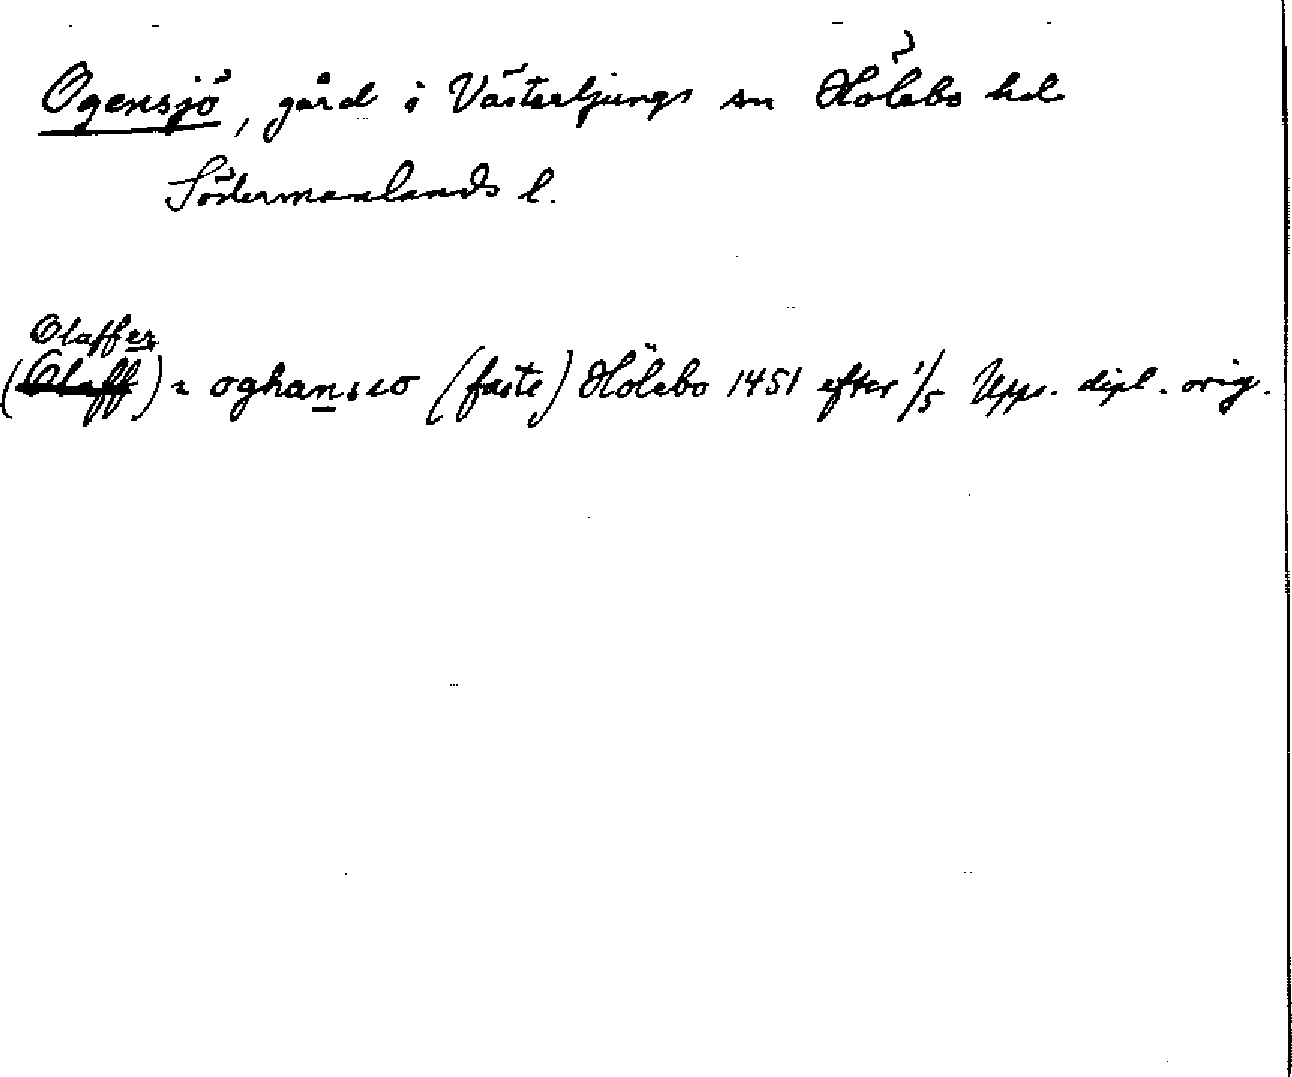 Ogensjö, gård i Västerljungs sn Hölebo hd
Södermanlands l.
Olaffer
(Olaff) i oghanseo (faste) Hölebo 1451 efter 1/5 Upps. dipl. orig.